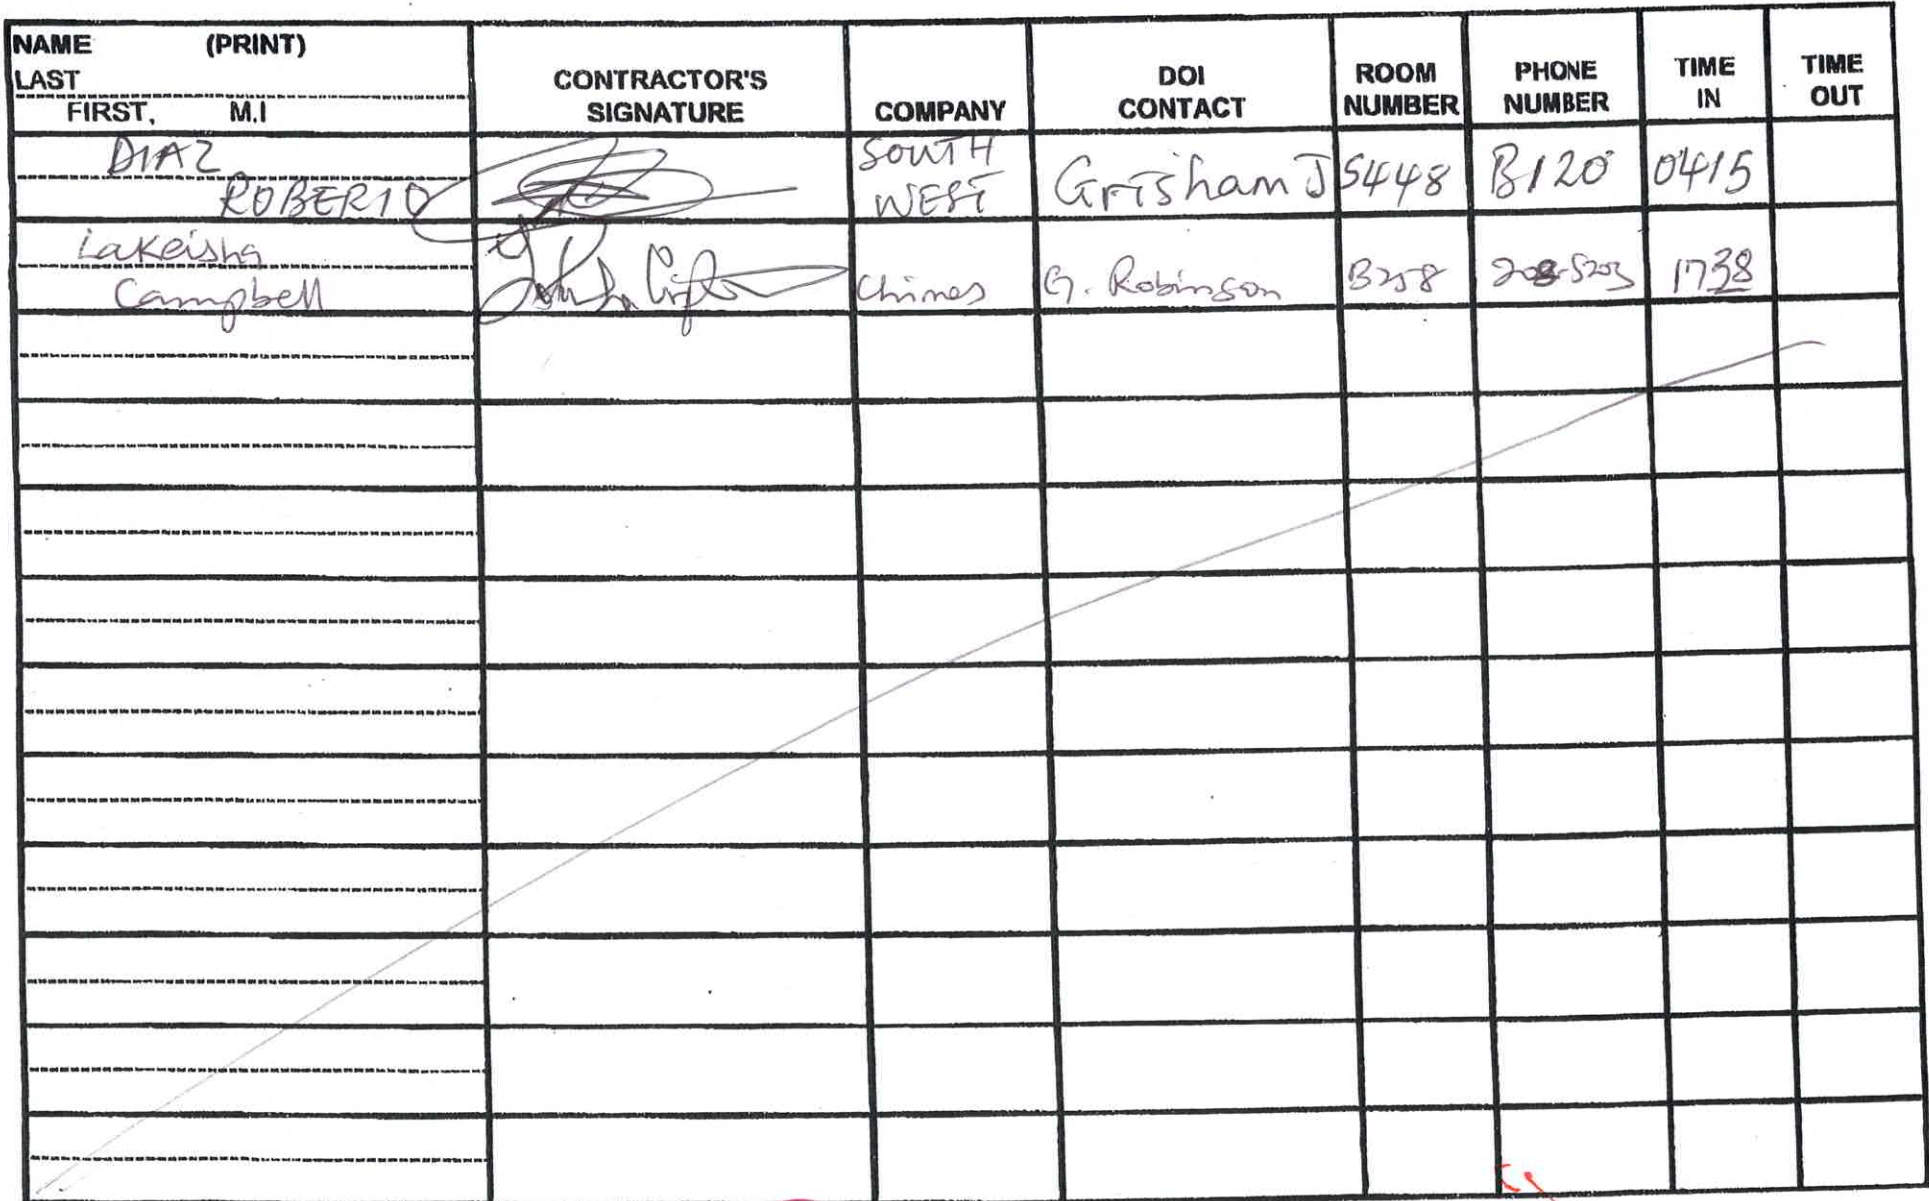 NAME (PRINT)
LAST
FIRST, M.I
CONTRACTOR'S
SIGNATURE
COMPANY
DOI
CONTACT
ROOM
NUMBER
PHONE
NUMBER
TIME
IN
TIME
OUT
DIAZ
ROBERTO
SOUTH
WEST
Grisham J
S448
B120
0415
Lakeisha
Campbell
Chimes
G. Robinson
B258
208-5203
1738